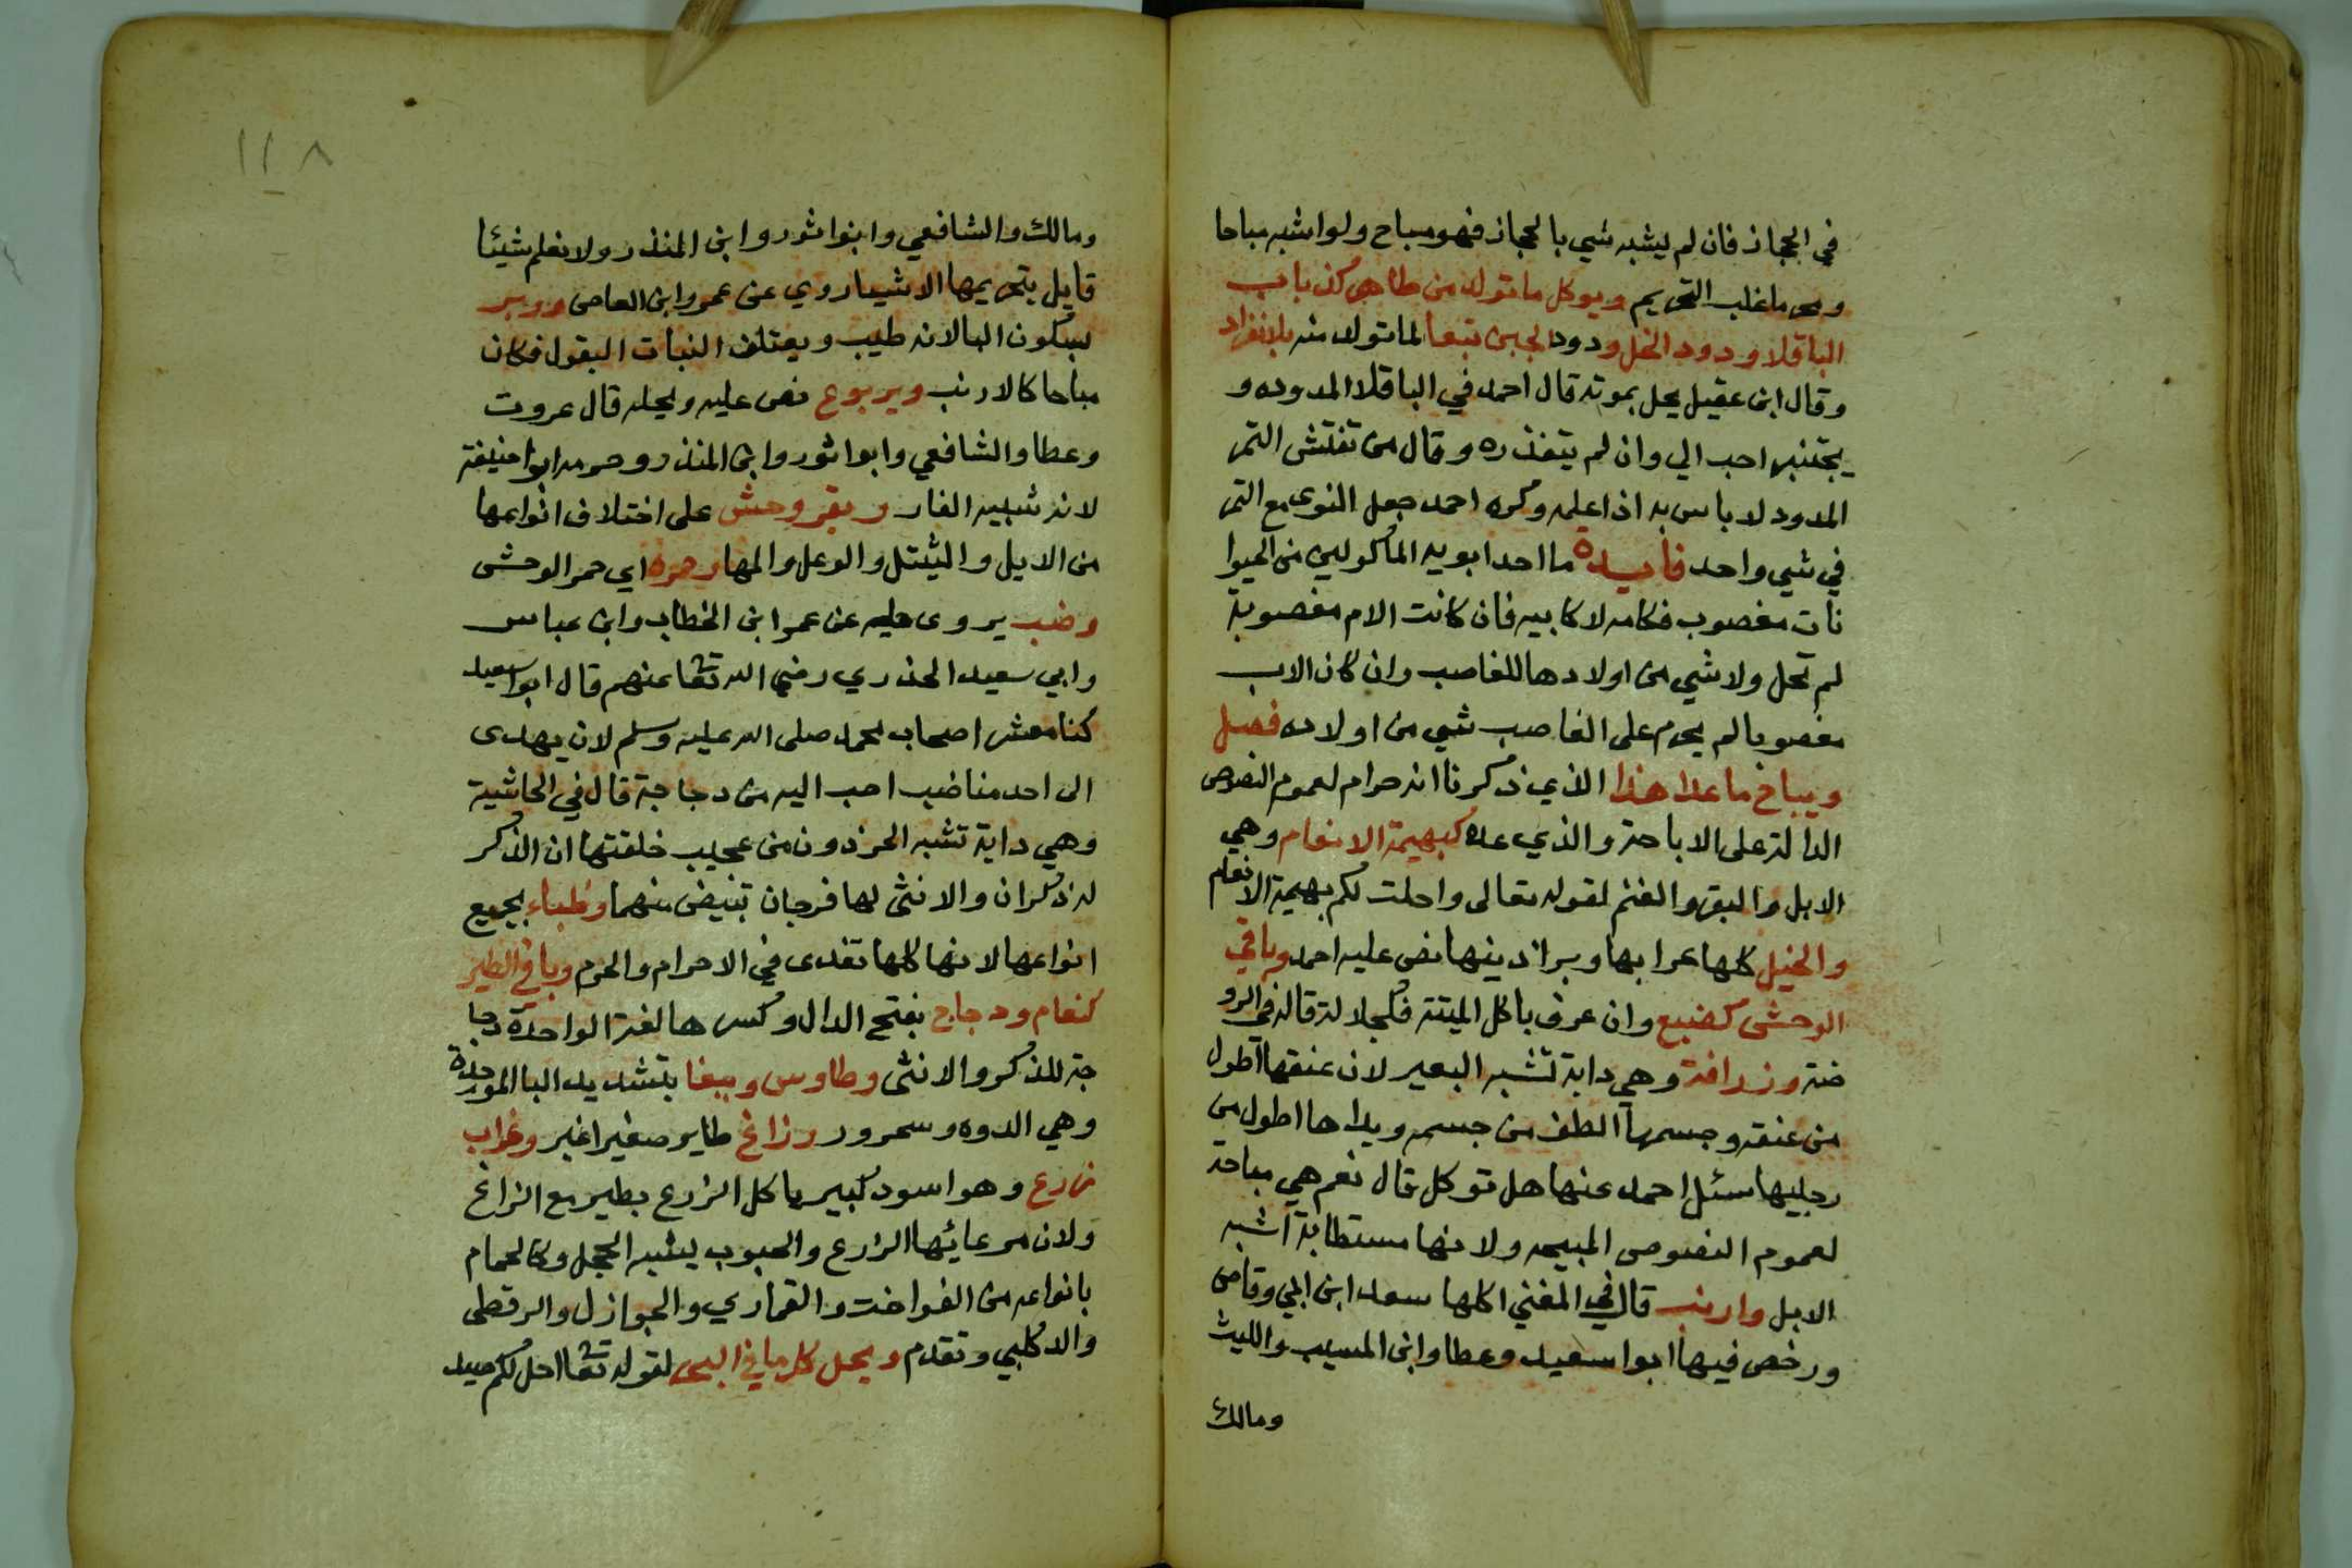 في الحجاز فان لم يشبه شي بالحجاز فهو مباح ولو اشبه مباحا
ومحرما غلب التحريم ويوكل ما تولد من طاهر كذباب
الباقلا ودود الخل ودود الجبن تبعا لما تولد منه بلا انفراد
وقال ابن عقيل يحل بموته قال احمد في الباقلا المدوده و
يجتنبه احب الي وان لم يتقذره وقال من تفتش التمر
المدود لا باس به اذا علمه وكره احمد جعل النوى مع التمر
في شي واحد فايدة ما احد ابويه الماكولين من الحيوا
نات مغصوب فكامه لا كابيه فان كانت الام مغصوبة
لم تحل ولا شي من اولادها للغاصب وان كان الاب
مغصوبا لم يحرم على الغاصب شي من اولاده فصل
ويباح ما عدا هذا الذي ذكرنا انه حرام لعموم النصوص
الدالة على الاباحة والذي عده كبهيمة الانعام وهي
الابل والبقر والغنم لقوله تعالى واحلت لكم بهيمة الانعام
والخيل كلها عرابها وبراذينها نص عليه احمد وباقي
الوحشى كضبع وان عرف باكل الميتة فكجلالة قاله في الرو
ضة وزرافة وهي دابة تشبه البعير لان عنقها اطول
من عنقه وجسمها الطف من جسمه ويداها اطول من
رجليها سئل احمد عنها هل توكل قال نعم هي مباحة
لعموم النصوص المبيحه ولانها مستطابة اشبه
الابل وارنب قال في المغني اكلها سعد ابن ابي وقاص
ورخص فيها ابوا سعيد وعطا وابن المسيب والليث
ومالك
١١٨
ومالك والشافعي وابوا ثور وابن المنذر ولا نعلم شيئا
قايل بتحريمها الا شيا روي عن عمرو ابن العاص ووبر
بسكون البا لانه طيب ويعتلف النبات البقول فكان
مباحا كالارنب ويربوع نص عليه وبحله قال عروت
وعطا والشافعي وابوا ثور وابن المنذر وحرمه ابوا حنيفة
لانه شبيه الفار وبقر وحش على اختلاف انواعها
من الايل والثيتل والوعل والمها وحمره اي حمر الوحشى
وضب يروى حله عن عمر ابن الخطاب وابن عباس
وابي سعيد الخذري رضي الله تعا عنهم قال ابوا سعيد
كنا معشر اصحاب محمد صلى الله عليه وسلم لان يهدى
الى احد منا ضب احب اليه من دجاجة قال في الحاشية
وهي دابة تشبه الحرذون من عجيب خلقتها ان الذكر
له ذكران والانثى لها فرجان تبيض منهما وظباء بجميع
انواعها لانها كلها تفدى في الاحرام والحرم وباقي الطير
كنعام ودجاج بفتح الدال وكسرها لغة الواحدة دجا
جة للذكر والانثى وطاوس وببغا بتشديد البا الموحدة
وهي الدوه وسحرور وزاغ طاير صغير اغبر وغراب
زرع وهو اسود كبير ياكل الزرع يطير مع الزاغ
ولان مرعائها الزرع والحبوب يشبه الحجل وكالحمام
بانواعه من الفواخت والقماري والجوازل والرقطى
والدكلبي وتقدم ويحل كل ما في البحر لقوله تعا احل لكم صيد